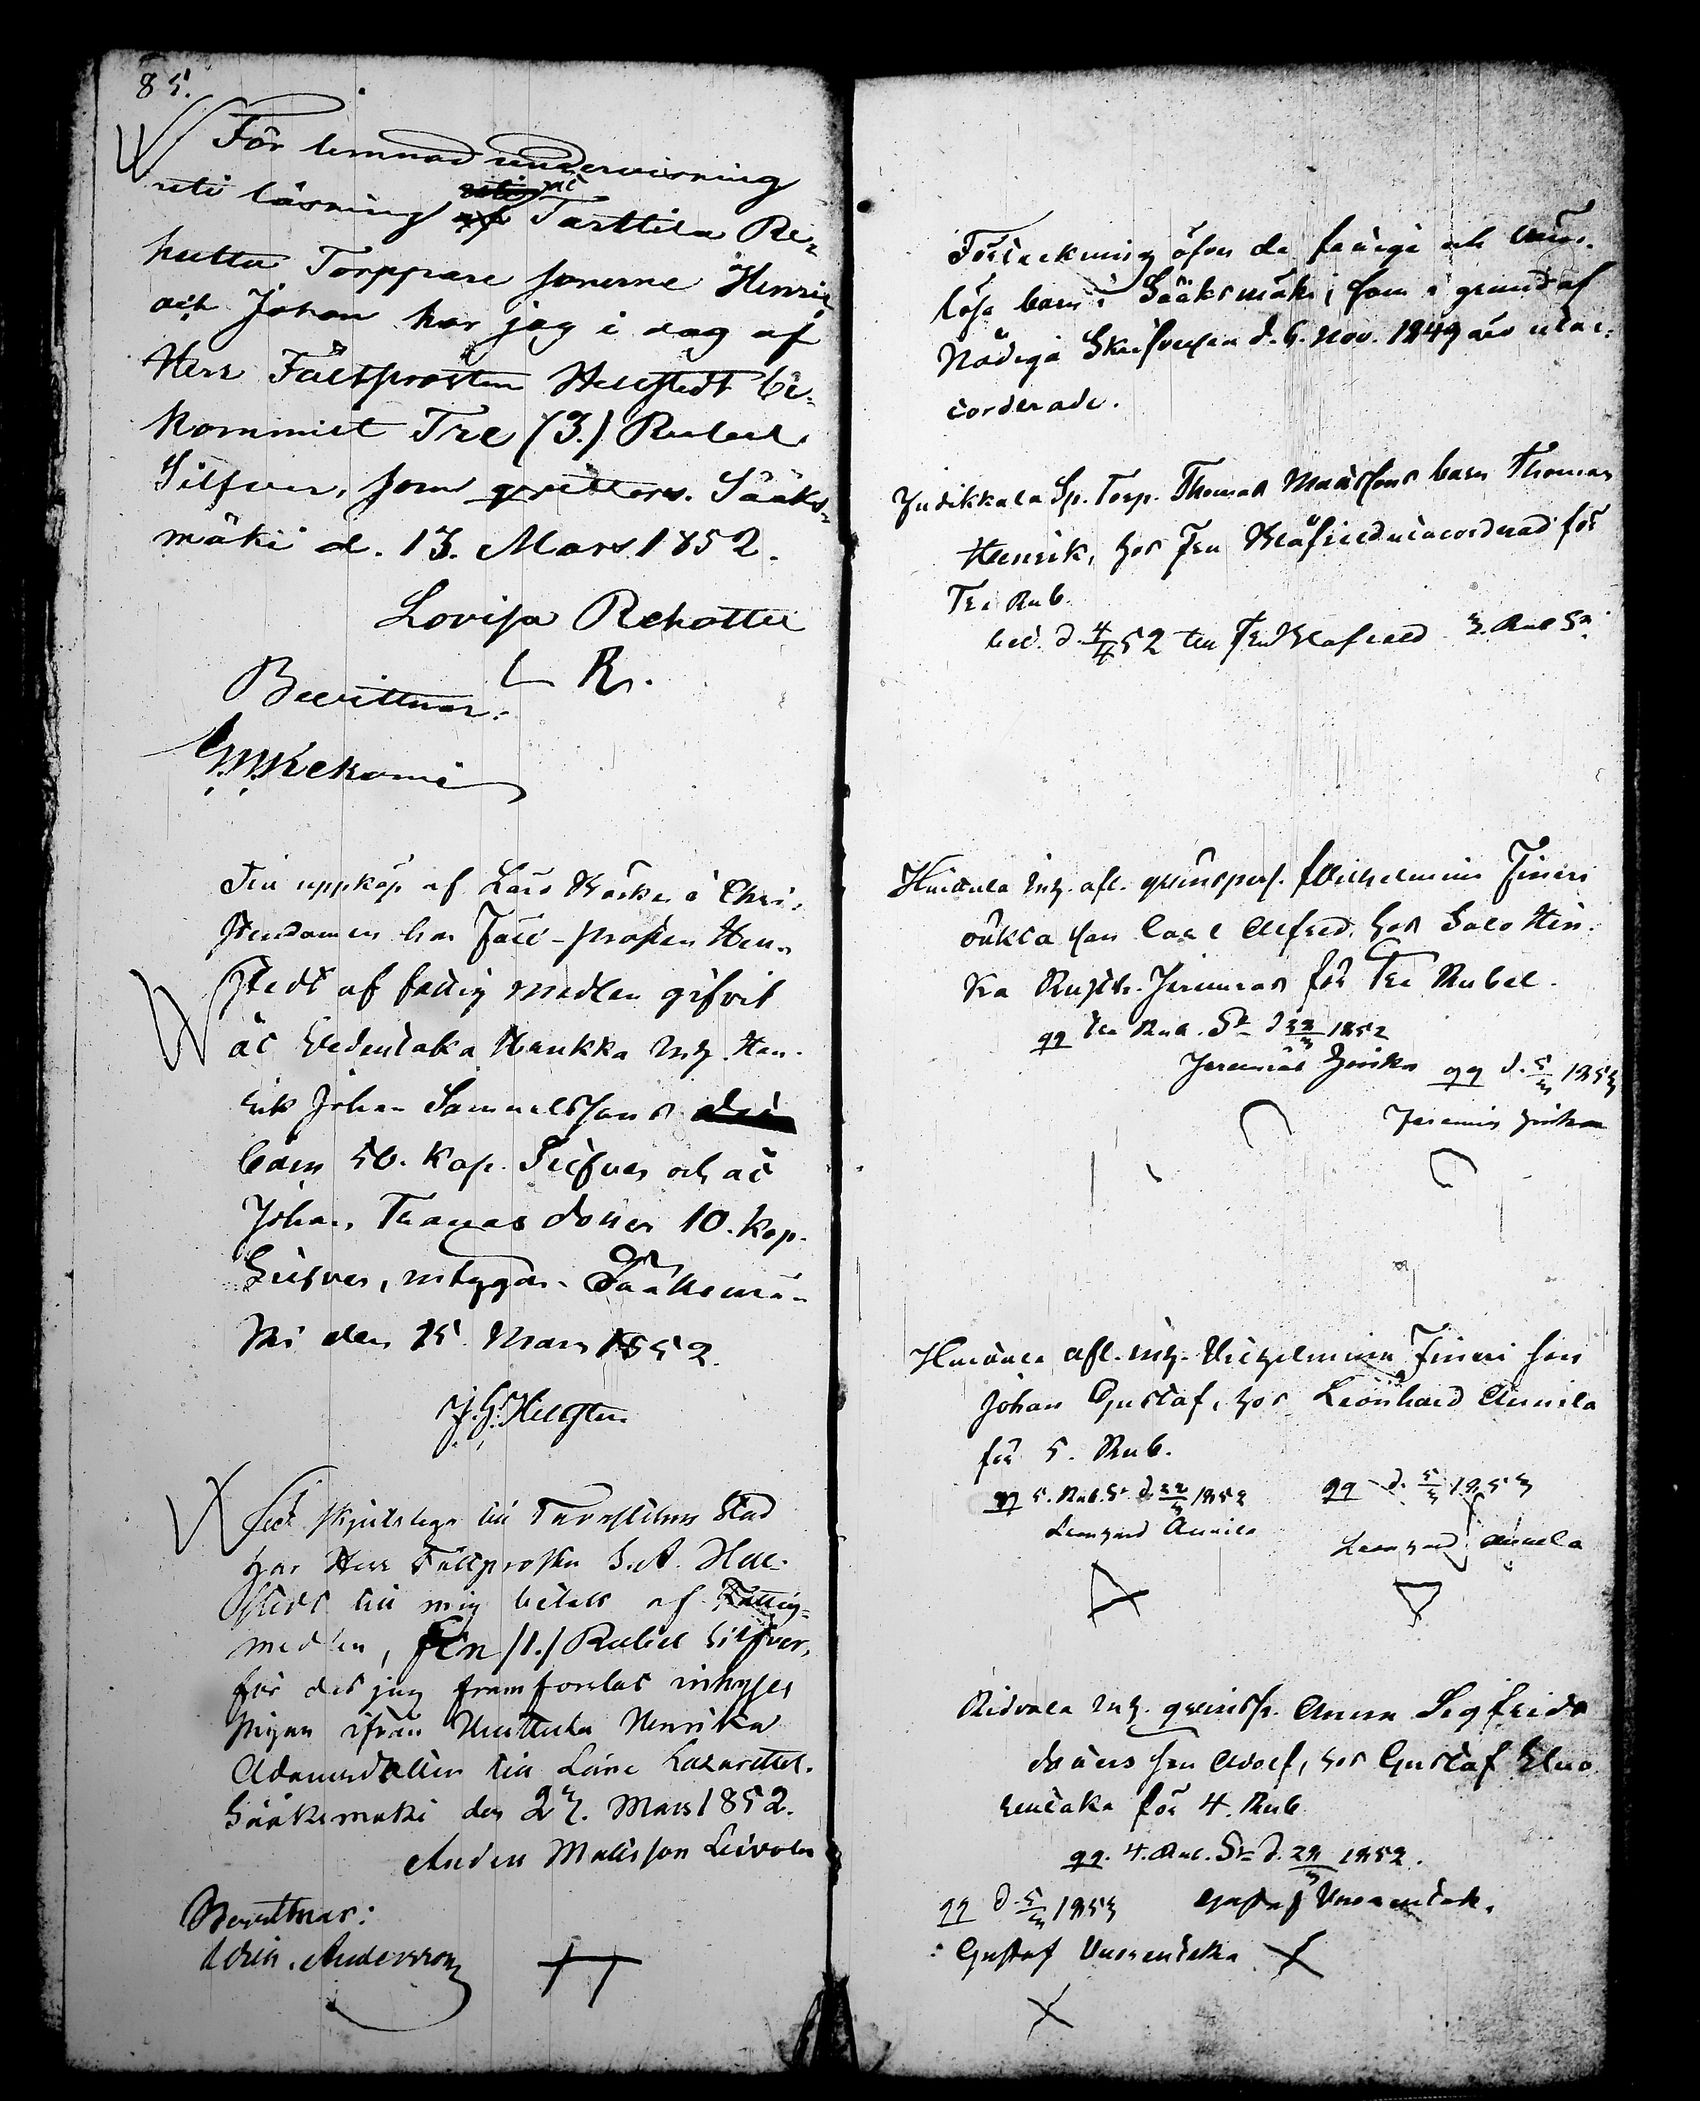 85.
För lemnad undervisning
uti läsning åt Tarttila Re-
hattu Torppare sönerne Henric
och Johan har jag i dag af
Herr Fältprosten Hellstedt be-
kommit Tre (3.) Rubel
Silfver, som qvitteras. Sääks-
mäki d. 13. Mars 1852.
Lovisa Rehottu
L R.
Bevittnar:
Kekoni
Till uppköp af Lärobok i Chri-
stendomen har Fält-prosten Hell-
stedt af fattig medlen gifvit
åt Hukka Inh. Hen-
rik Johan Samuelssons
barn 50. kop. Silfver och åt
Johan Thomas dotter 10. kop.
Silfver, intygar. Sääksmä-
ki den 15 Mars 1852.
J. G. Hellsten
För skjutslega till Tavastehus Stad
har Herr Fältprosten Hell-
stedt till mig betalt af Fattig-
medlen, En /1./ Rubel Silfver,
för det jag framforslat inhyses
pigan ifrån Huittula Henrika
Adamsdotter till Läne Lazarettet.
Sääksmäki den 27. Mars 1852.
Anders Mattsson Leivola
Bevittnar:
Andersson
Förteckning öfver de fattige och värn-
lösa barn i Sääksmäki, som i grund af
Nådiga Skrifvelsen d. 6. Nov. 1849 äro utac-
corderade.
Judikkala Sp. Torp. Thomas Mattssons barn Thomas
Henrik, hos Fru utaccorderad för
Tre Rub.
bet. d. 4/4 52 till Fru 3. Rub Sr
Huittula Inh. afl. qvinspers. Wilhelmina Fineri
oäkta son Carl Alfred, hos Salo Hin-
ka Rusth. Jeremias för Tre Rubel.
qq Tre Rub. Sr d 22/3 1852
Jeremias Hinka qq d. 5/3 1853
Jeremias Hinka
Huittula afl. inh. Vilhelmina Fineri son
Johan Gustaf, hos Leonhard Annila
för 5. Rub.
qq 5. Rub. Sr d. 22/3 1852 qq d. 5/3 1853
Leonhard Annila
Leonhard Annila
Ridvala Inh. qvinsp. Anna Sigfrids
dotters son Adolf, hos Gustaf Uuo
rentaka för 4. Rub
qq. 4. Rub. Sr d. 22/3 1852.
qq d. 5/3 1853 Gustaf Vuorentak.
Gustaf Vuorentaka